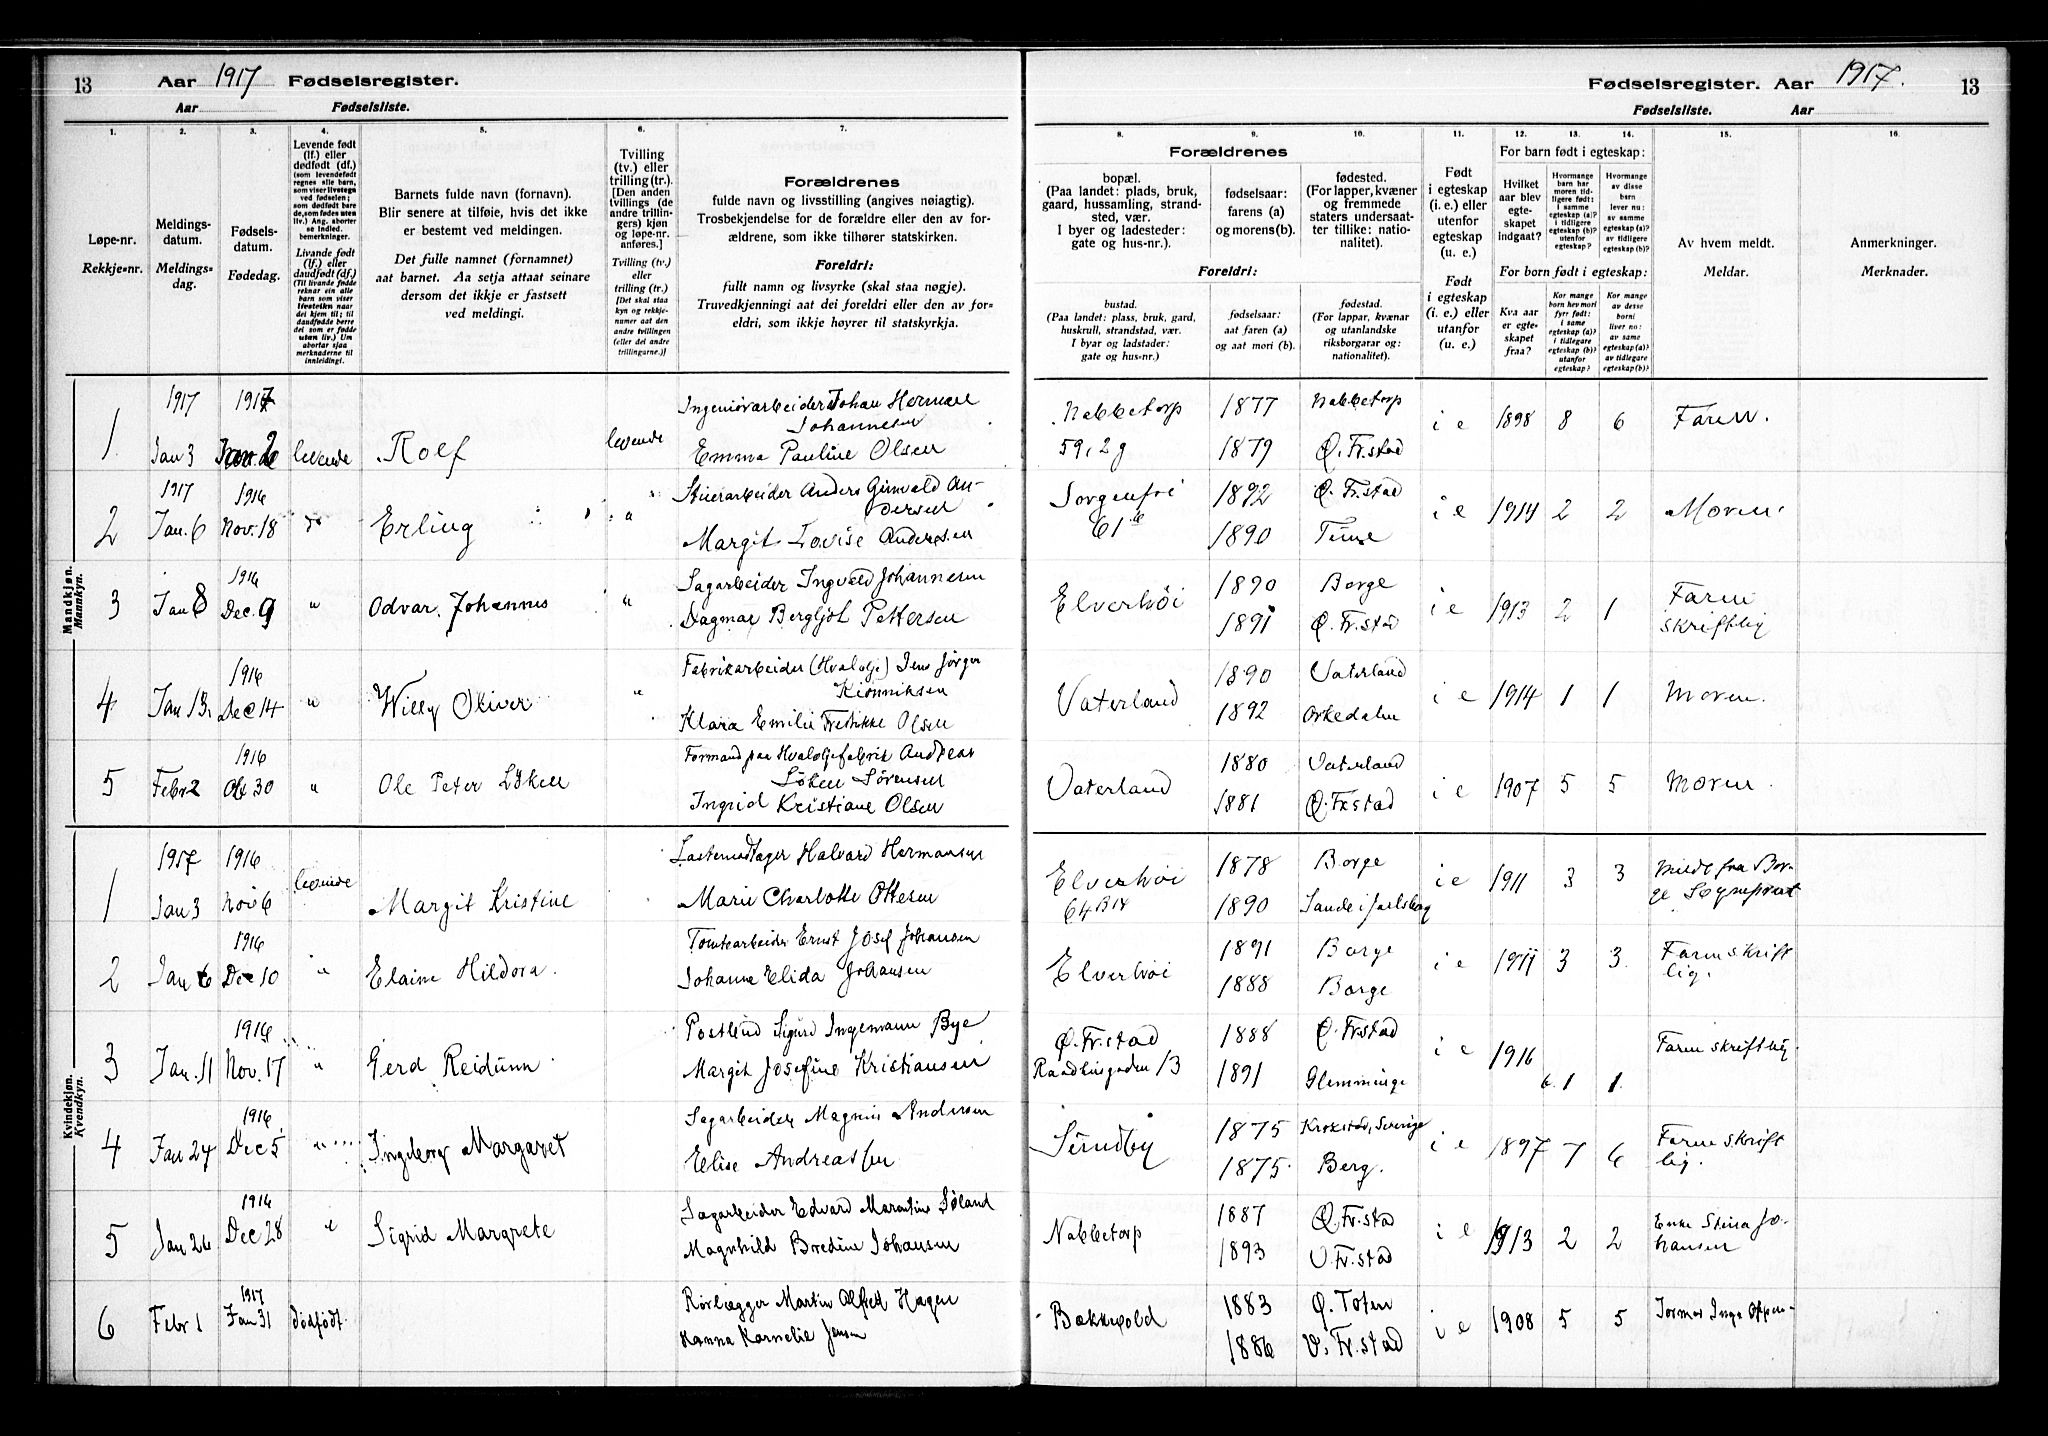 13 Aar 1917 Fødselsregister.
Aar Fødselsliste.
1. 2. 3. 4. 5. 6. 7.
Løpe-nr.
Rekkje-nr.
Meldings-
datum.
Meldings-
dag.
Fødsels-
datum.
Fødedag.
Levende født
(lf.) eller
dødfødt (df.)
(som levendefødt
regnes alle barn,
som viser livstegn
ved fødselen;
som dødfødt bare
de, som fødes uten
liv.) Ang. aborter
se indled.
bemerkninger.
Livande født
(lf.) eller
daudfødt (df.)
(Til livande fødde
reknar ein alle
barn som viser
livsteikn naar
dei kjem til; til
daudfødde berre
dei som er fødde
utan liv.) Um
abortar sjaa
merknaderne til
innleiding!
Barnets fulde navn (fornavn).
Blir senere at tilføie, hvis det ikke
er bestemt ved meldingen.
Det fulle namnet (fornamnet)
aat barnet. Aa setja attaat seinare
dersom det ikkje er fastsett
ved meldingi.
Tvilling
(tv.) eller
trilling (tr.).
[Den anden
tvillings (de
andre trillin-
gers) kjøn
og løpe-nr.
anføres.]
Tvilling (tv.)
eller
trilling (tr.)
[Det skal staa
kyn og rekkje-
numer aat den
andre tvillingen
(eller dei andre
trillingarne.)]
Forældrenes
fulde navn og livsstilling (angives nøiagtig).
Trosbekjendelse for de forældre eller den av for-
ældrene, som ikke tilhører statskirken.
Foreldri:
fullt namn og livsyrke (skal staa nøgje).
Truvedkjenningi aat dei foreldri eller den av for-
eldri, som ikkje høyrer til statskyrkja.
Mandkjøn.
Mannkyn.
1 1917 Jan 3 1917 levende Rolf levende Ingeniørarbeider Johan Herman
Johannesen
Emma Pauline Olsen
2 1917 Jan. 6 1916 Nov. 18 do Erling " Anders Ginvald An-
dersen
Margit Lovise Andersen
3 Jan 8 1916 Dec. 9 " Odvar. Johannes " Sagarbeider Ingvald Johannesen
Dagmar Bergljot Pettersen
4 Jan 13 1916 Dec 14 " Willy Oliver " Fabrikarbeider (Hvalolje) Jens Jörgen
Klara Emilie Fredrikke Olsen
5 Febr 2 1916 Okt 30 " Ole Peter Løken Formand paa Hvaloljefabrik Andreas
Løken Sørensen
Ingrid Kristiane Olsen
Kvindekjøn.
Kvendkyn.
1 1917 Jan 3 1916 Nov 6 levende Margit Kristine Lastemodtager Halvard Hermansen
Marie Charlotte Ottesen
2 Jan 6 1916 Dec 10 " Elaine Hildora. Tomtearbeider Ernst Josef Johansen
Johanne Elida Johansen
3 Jan. 11 1916 Nov. 17 " Gerd Reidunn Postbud Sigurd Ingemann Bye
Margit Josefine Kristiansen
4 Jan 24 1916 Dec 5 " Ingeborg Margaret Sagarbeider Magnus Andersen
Elise Andreassen
5 Jan 26 1916 Dec 28 " Sigrid Margrete Sagarbeider Edvard Martin Søland
Magnhild Bredine Johansen
6 Febr 1 1917 Jan 31 dødfødt. Rørlægger Martin Alfred Hagen
Hanna Kornelie Jensen
Fødselsregister. Aar 1917. 13
Fødselsliste. Aar
8. 9. 10. 11. 12. 13. 14. 15. 16.
Forældrenes
bopæl.
(Paa landet: plads, bruk,
gaard, hussamling, strand-
sted, vær.
I byer og ladesteder:
gate og hus-nr.).
fødselsaar:
farens (a)
og morens (b).
fødested.
(For lapper, kvæner
og fremmede
staters undersaat-
ter tillike: natio-
nalitet).
Foreldri:
bustad.
(Paa landet: plass, bruk, gard,
huskrull, strandstad, vær.
I byar og ladstader:
gate og hus-nr.)
fødselsaar:
aat faren (a)
og aat mori (b).
fødestad.
(For lappar, kvænar
og utanlandske
riksborgarar og:
nationalitet).
Født
i egteskap
(i. e.) eller
utenfor
egteskap
(u. e.)
Født
i egteskap
(i. e.) eller
utanfor
(u. e.)
For barn født i egteskap:
Hvilket
aar blev
egte-
skapet
indgaat?
Hvormange
barn har
moren tid-
ligere født:
i samme
egteskap (a)?
i tidligere
egteskap (b)?
utenfor
egteskap?
Hvormange
av disse
barn
lever nu:
av samme
egteskap (a)?
av tidligere
egteskap (b)?
For born født i egteskap:
Kva aar
er egte-
skapet
fraa?
Kor mange
born hev mori
fyrr født:
i same
egteskap (a)?
i tidlegare
egteskap (b)?
utanfor
egteskap?
Kor mange
av desse
borni
liver no:
av same
egteskap (a)?
av tidlegare
egteskap (b)?
Av hvem meldt.
Meldar.
Anmerkninger.
Merknader.
Nabbetorp 59, 2 g 1877 1879 Nabbetorp Ø. Fr.stad i e 1898 8 6 Faren.
Sorgenfri 61 1892 1890 Ø. Fr.stad Tune i e 1914 2 2 Moren.
Elverhöi 1890 1891 Borge Ø. Fr.stad i e 1913 2 1 Faren
skriftlig
Vaterland 1890 1892 Vaterland Orkedalen i e 1914 1 1 Moren.
Vaterland 1880 1881 Vaterland Ø. Fr.stad i e 1907 5 5 Moren.
Elverhöi 64 1878 1890 Borge Sande i Jarlsberg i e 1911 3 3 fra Bor-
ge
Elverhöi 1891 1888 Borge Borge i e 1911 3 3. Faren skrift
lig.
Ø. Fr.stad Raadhusgaden 13 1888 1891 Ø. Fr.stad Glemminge i e 1916 1 1. Faren skriftlig.
Sundby 1875 1875. Krokstad, Sverige Berg. i e 1897 7 6 Faren skrift
lig.
Nabbetorp 1887 1893 Ø. Fr.stad V. Fr.stad i e 1913 2 2 Enke Stina Jo-
hansen
Bakkevold 1883 1886 Ø. Toten V. Fr.stad i e 1908 5 5 Jormor Inga Oppen-